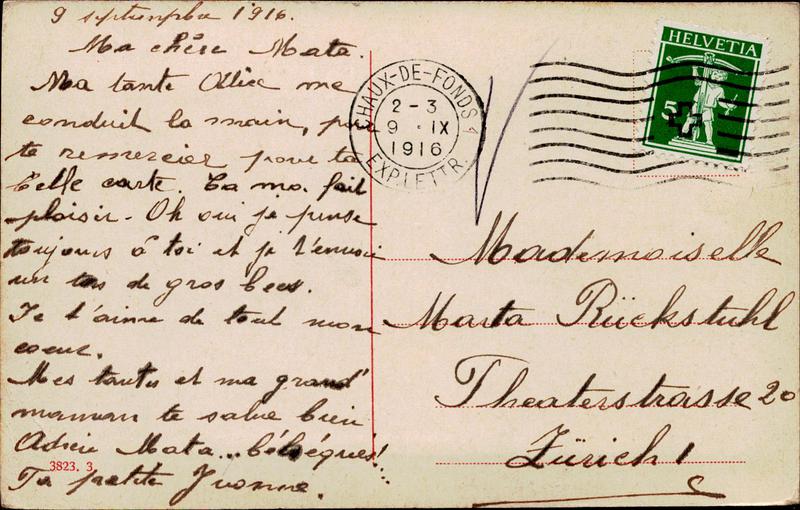 9 septempbre 1916.
Ma chère Mata.
Ma tante Alice me
conduit la main, pour
te remercier pour ta
belle carte. Ca ma fait
plaisir. Oh oui je pense
toujours à toi et je t'envoie
un tas de gros becs.
Je t'aime de tout mon
coeur.
Mes tantes et ma grand'
maman te salue bien
Adieu Mata...
Ta petite Yvonne.
3823. 3.
CHAUX-DE-FONDS 4
2-3
9 · IX
1916
EXP. LETTR.
HELVETIA
5
Mademoiselle
Marta Rückstuhl
Theaterstrasse 20
Zürich 1